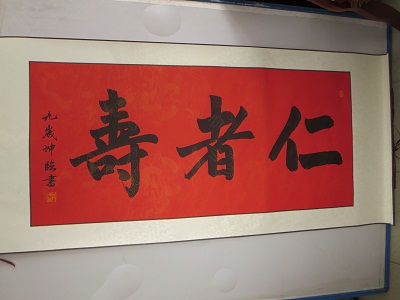 仁者壽
九歲坤臨書